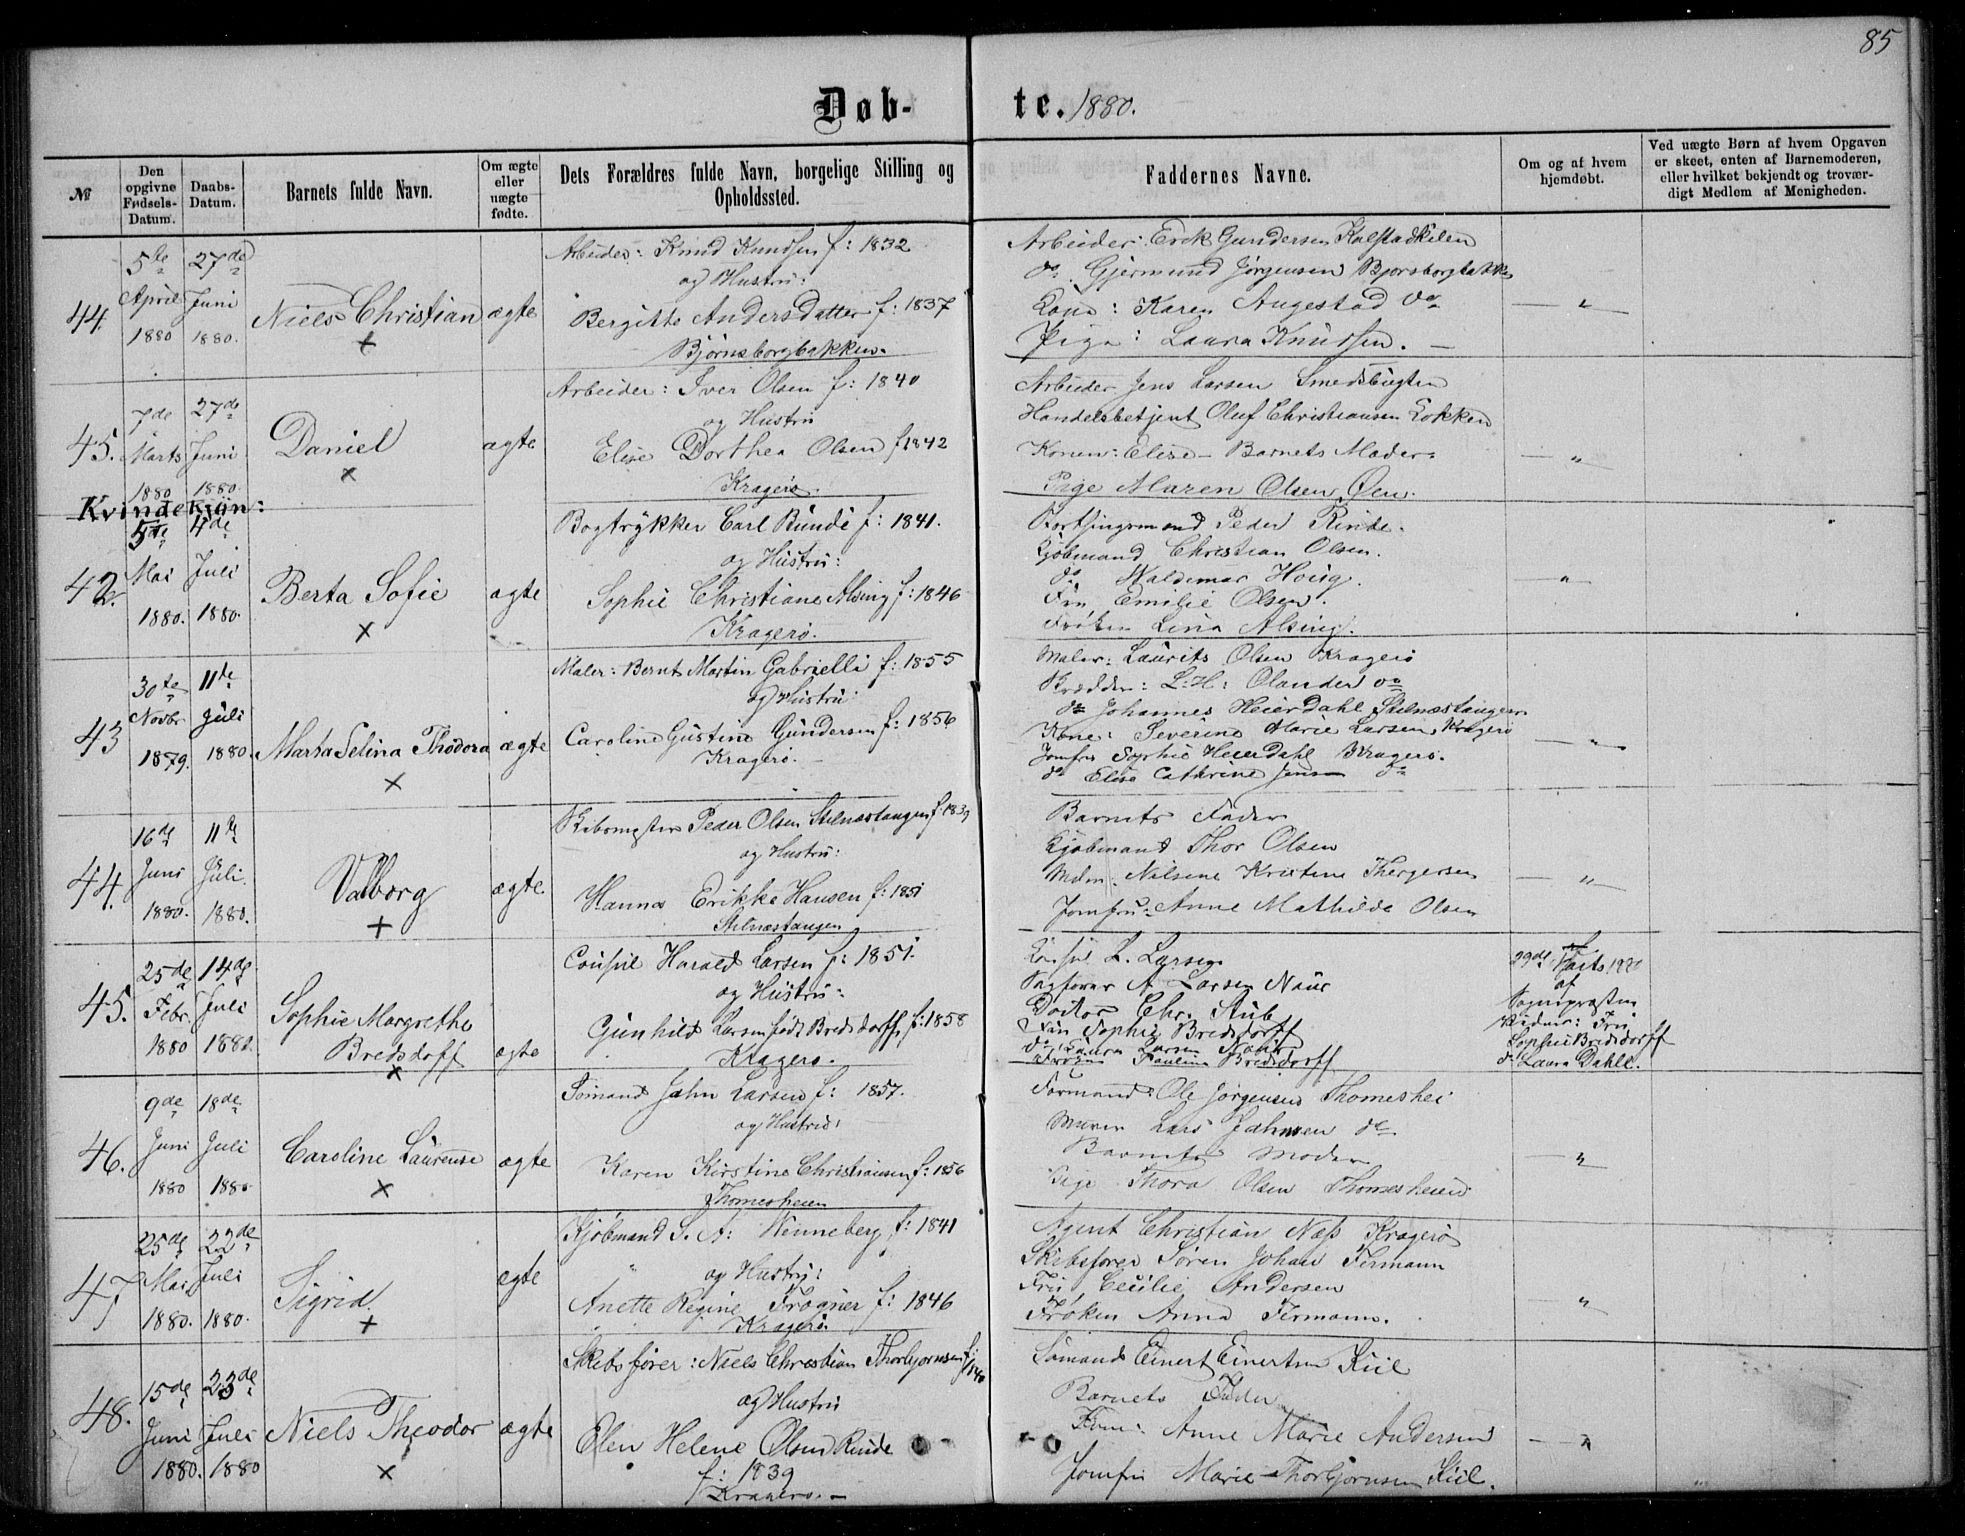 85
Døb-
te. 1880.
№
Den opgivne Fødsels-Datum.
Daabs-Datum.
Barnets fulde Navn.
Om ægte eller uægte fødte.
Dets Forældres fulde Navn, borgelige Stilling og Opholdssted.
Faddernes Navne.
Om og af hvem hjemdøbt.
Ved uægte Børn af hvem Opgaven er skeet, enten af Barnemoderen, eller hvilket bekjendt og troværdigt Medlem af Menigheden.
44.
5te April 1880
27de Juni 1880.
Niels Christian
+
ægte
Arbeider: Knud Knudsen f: 1832
og Hustru:
Bergitte Andersdatter f: 1837
Bjørnsborgbakken.
Arbeider: Erek Gundersen Kalstadkilen
do Gjermund Jørgensen Bjørsborgbakke
Kone: Karen Augestad do
Pige: Laura Knudsen.
— " —
45.
7de Marts 1880
27de Juni 1880.
Daniel
x
ægte
Arbeider: Iver Olsen f: 1840
og Hustru
Elise Dorthea Olsen f 1842
Kragerø.
Arbeider Jens Larsen Smedsbugten
Handelsbetjent Oluf Christiansen Løkken
Konen: Elise - Barnets Moder.
Pige Maren Olsen Øen.
— " —
Kvindekjøn:
42.
5te Mai 1880.
4de Juli 1880.
Berta Sofie
x
ægte
Bogtrykker Carl Runde f: 1841.
og Hustru:
Sophie Christiane Alsing f: 1846
Kragerø.
Peder Rinde.
Kjøbmand Christian Olsen.
do Waldemar Houg.
Fru Emilie Olsen.
Frøken Lina Alsing.
— " —
43
30te Novbr 1879.
11te Juli 1880.
Marta Selina Thodora
x
ægte
Maler: Bernt Martin Gabrielli f: 1855
og Hustru:
Caroline Gustine Gundersen f: 1856
Kragerø.
Maler: Laurits Olsen Kragerø
L: H: Olander do
do Johannes Heierdahl Stilnæstangen
Kone: Severine Marie Larsen Kragerø
Jomfru Sophie Heierdahl Kragerø.
do Elise Cathrine Jensen do
— " —
44.
16de Juni 1880.
11te Juli 1880.
Valborg
+
ægte.
Peder Olsen Stilnæstangen f: 1839
og Hustru:
Hanna Erikke Hansen f: 1851
Stilnæstangen
Barnets Fader
Kjøbmand Thor Olsen
Mdm. Nilsine Kristine Thergersen
Jomfru: Anne Mathilde Olsen
— " —
45.
25de Febr. 1880
14de Juli 1880.
Sophie Margrethe
Bredsdorff
x
ægte
Consul Harald Larsen f: 1851.
og Hustru:
Gunhild Larsen født Bredsdorff, f: 1858
Kragerø.
Consul L. Larsen
Sagfører A Larsen Naur
Doctor Chr. Stub
Fru Sophie Bredsdorff
do Laura Larsen Naur
Frøken Paulina Bredsdorff
29de Marts 1880
af
Sognepræsten
Vidner: Fru
Sophie Bredsdorff
do Laura Dahll.
46.
9de Juni 1880
18de Juli 1880
Caroline Laurense
x
ægte
Sømand Jahn Larsen f: 1857.
og Hustru:
Karen Kirstine Christiansen f: 1856
Thomesheien
Formand: Ole Jørgensen Thomeshei
Murer Lars Jahnsen do
Barnets Moder
Pige Thora Olsen Thomesheien
— " —
47
25de Mai 1880.
22de Juli 1880.
Sigrid.
+
ægte
Kjøbmand S. A: Winneberg f: 1841
" og Hustru:
Anette Regine Frogner f: 1846
Kragerø
Agent Christian Næss Kragerø
Skibsfører Søren Johan Fermann
Fru Cecilie Andersen
Frøken Anna Fermann.
"
48.
15de Juni 1880.
23de Juli 1880
Niels Theodor
x
ægte
Skibsfører: Niels Christian Thorbjørnsen f: 1840
og Hustru
Elen Helene Olsen Rinde
f: 1839
Kragerø.
Sømand Einert Einertsen Kiil
Barnets Fader
Kone: Anne Marie Andersen
Jomfru Marie Thorbjørnsen Kiil.
— " —